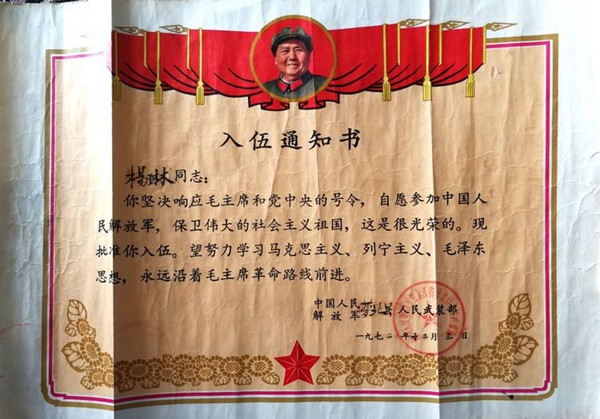 入伍通知书
杨琳同志:
你坚决响应毛主席和党中央的号令,自愿参加中国人
民解放军,保卫伟大的社会主义祖国,这是很光荣的。现
批准你入伍。望努力学习马克思主义、列宁主义、毛泽东
思想,永远沿着毛主席革命路线前进。
中国人民
解放军
人民武装部
一九七二年十二月三日